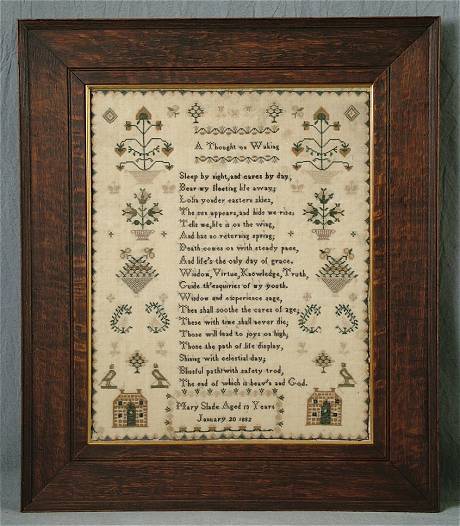 A Thought on Waking
Sleep by night, and cares by day,
Bear my fleeting life away;
Lo in yonder eastern skies,
The sun appears, and bids we rise;
Tells we, life is on the wing,
And has no returning spring;
Death comes on with steady pace,
And life's the only day of grace.
Wisdom, Virtue, Knowledge, Truth,
Guide th'esquiries of my youth.
Wisdom and experience sage,
Then shall soothe the cares of age;
These with time shall never die;
These will lead to joys on high,
Those the path of life display,
Shining with celestial day;
Blissful path! with safety trod,
The end of which is heav'n and God.
Mary Slade Aged 10 Years
January 20 1852